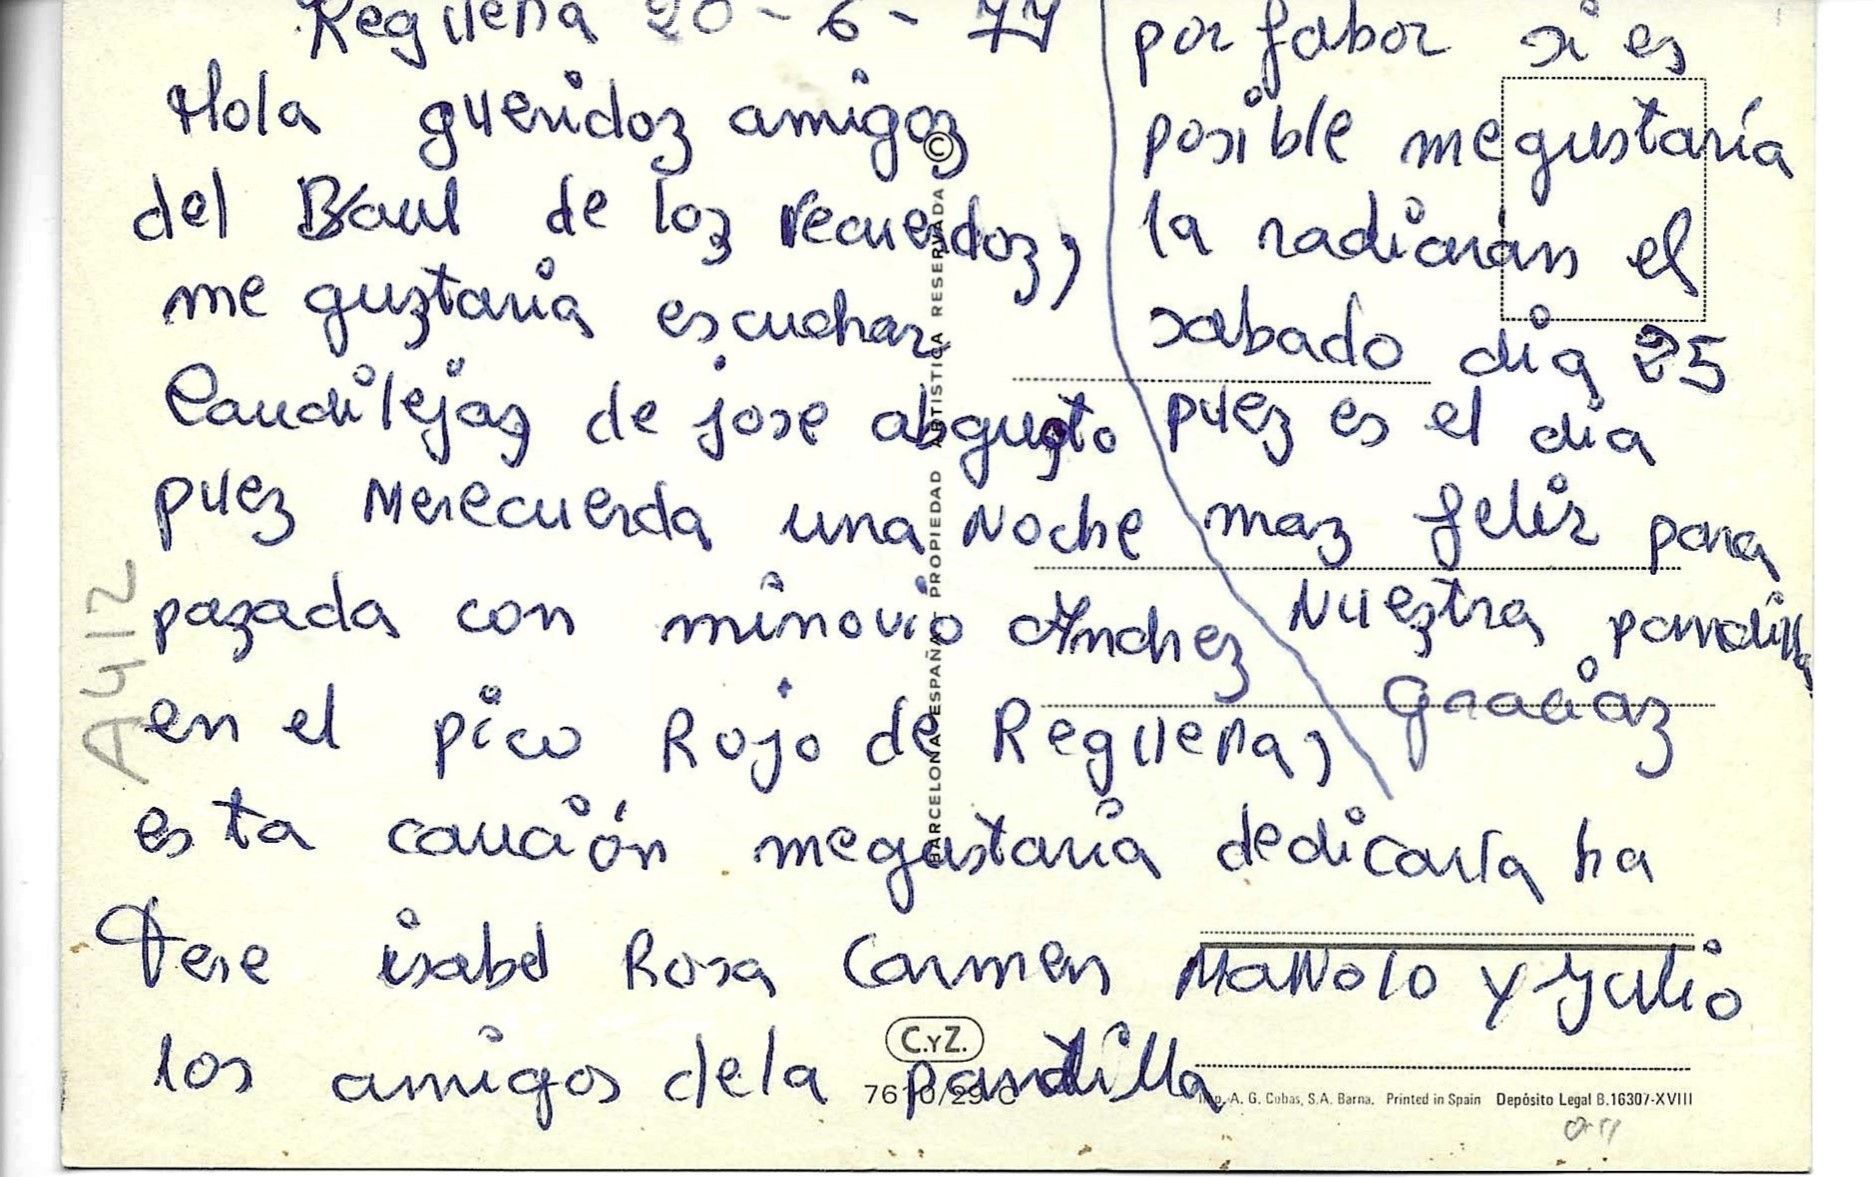 Regueña 20-6-77
Hola queridoz amigoz
del Baul de loz recuerdoz,
me guztaria escuchar
Candilejaz de jose abgusto
puez Merecuerda una Noche
pazada con minovio Andrez
en el pico Rojo de Regueña,
esta canción megustaria dedicarla ha
Tere isabel Rosa Carmen MaNolo y Julio
los amigos dela pandilla
por fabor si es
posible megustaría
la radiarán el
sabado dia 25
puez es el dia
maz feliz para
Nueztra pandilla
graciaz
A412
© BARCELONA-ESPAÑA PROPIEDAD ARTISTICA RESERVADA
C.YZ.
Imp. A. G. Cobas, S.A. Barna. Printed in Spain Depósito Legal B.16307-XVIII